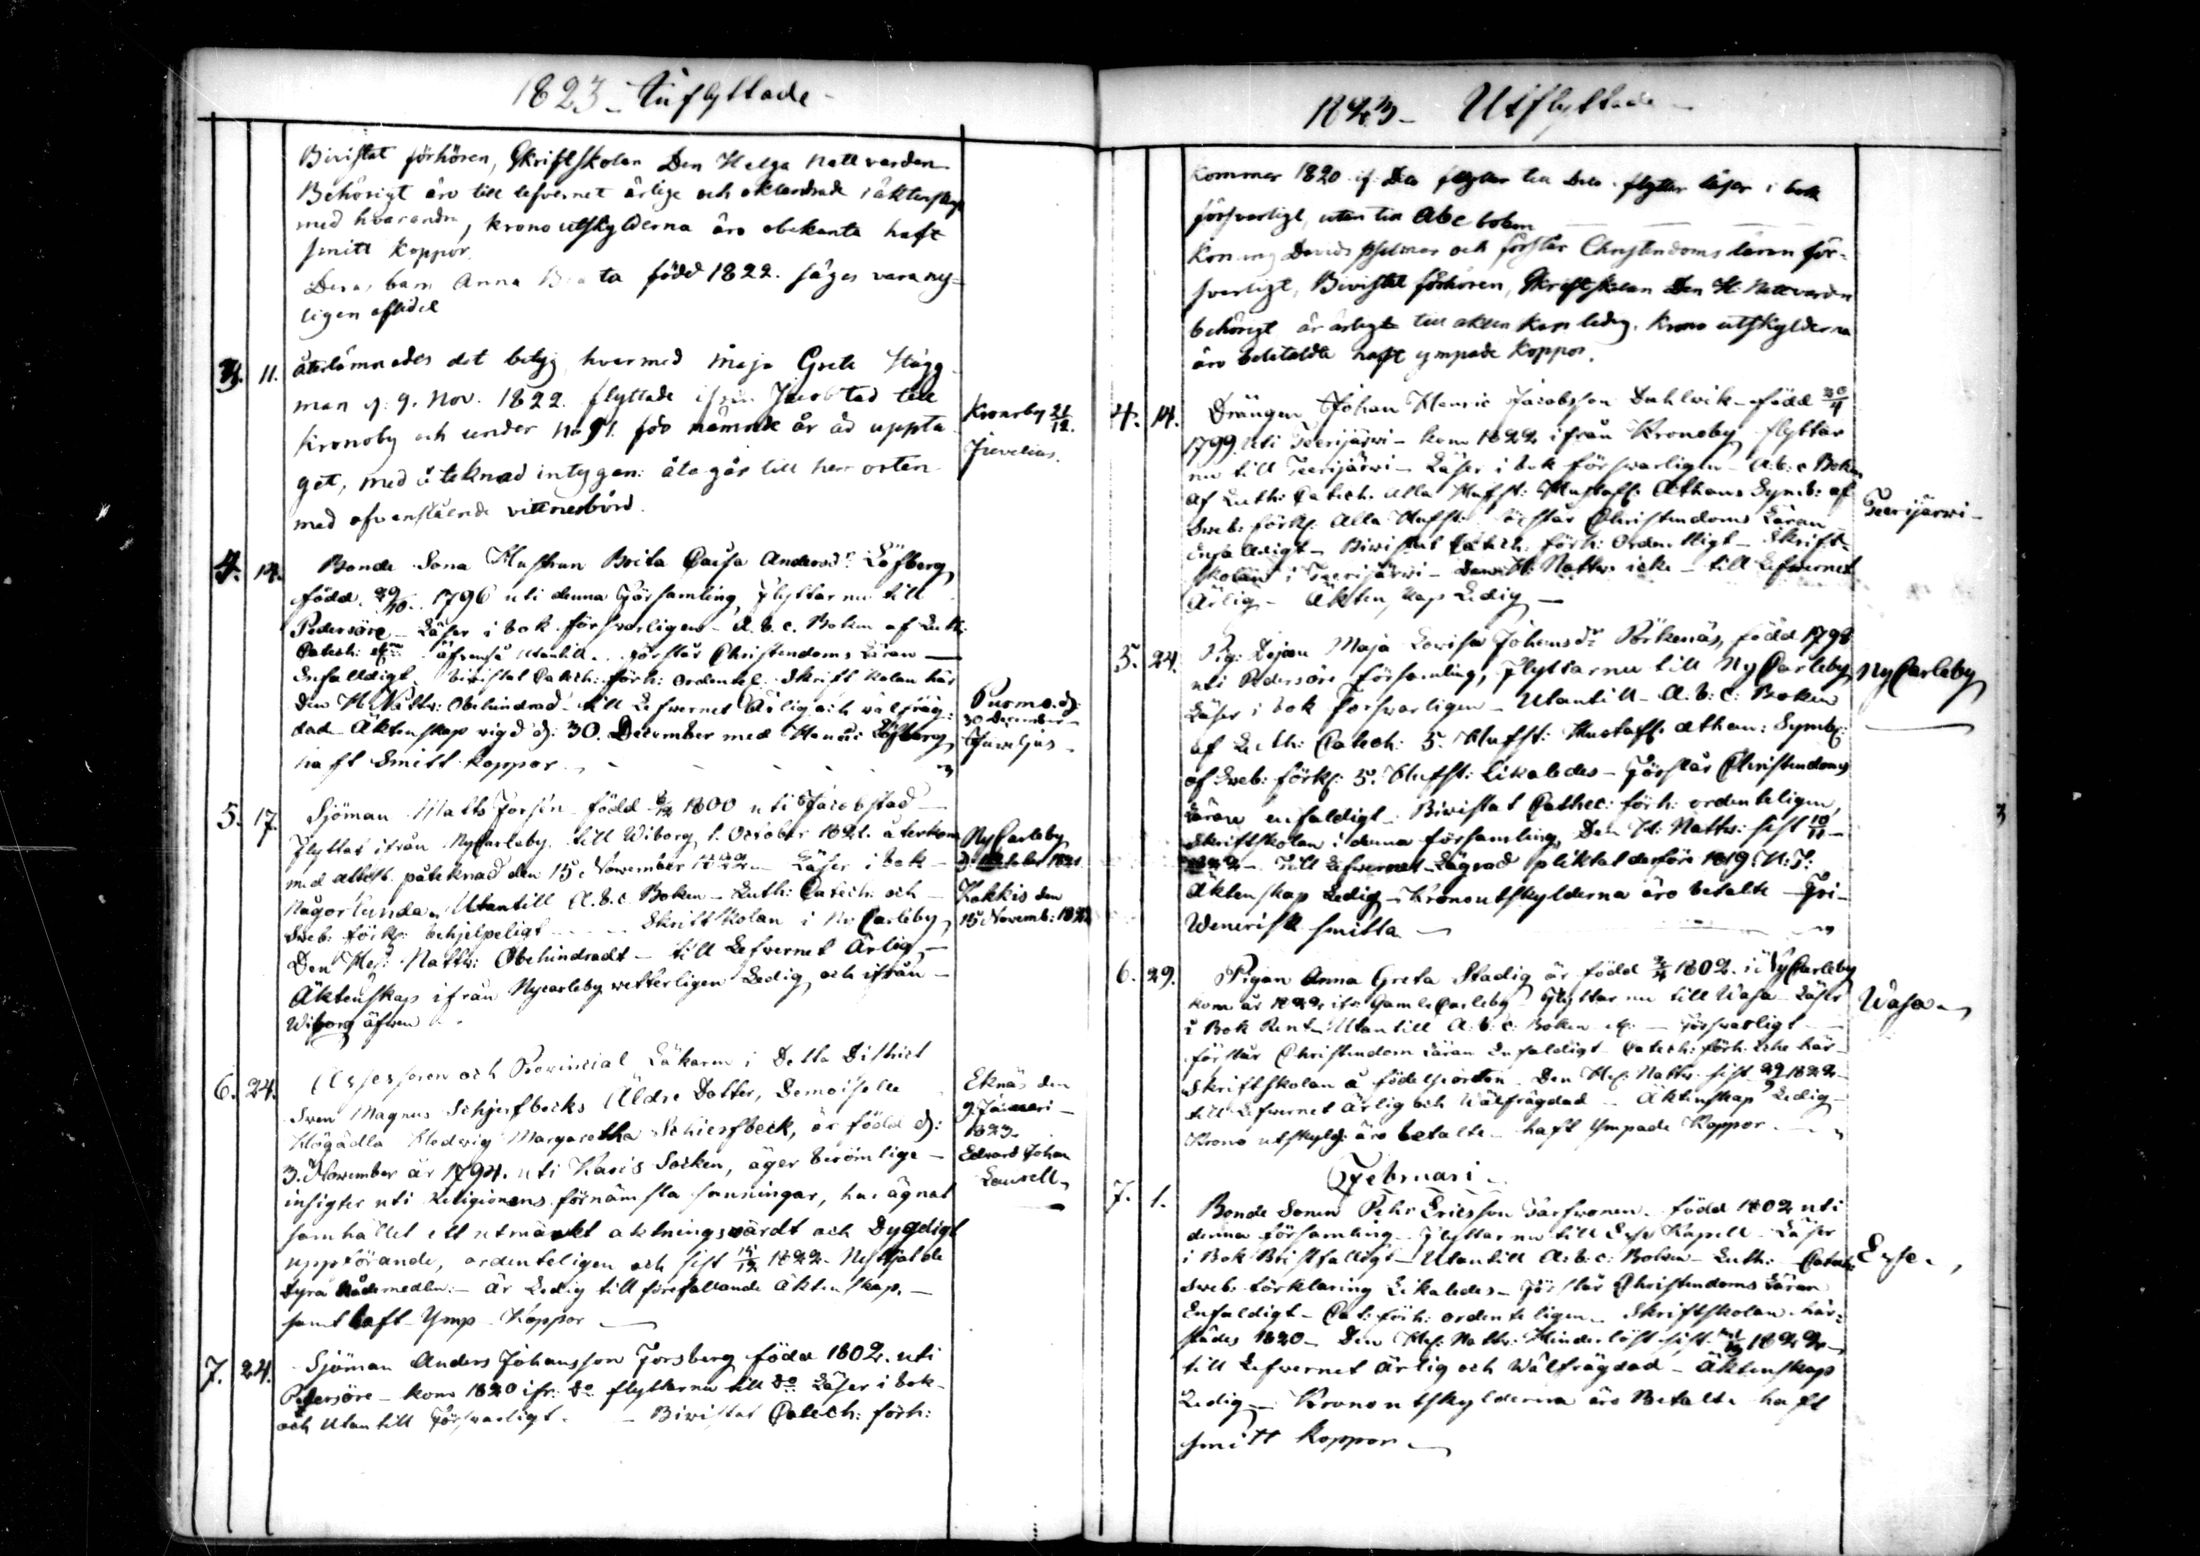 1823 – Inflyttade –
Bivistat förhören, Skriftskolan Den Helga Nattvarden
Behörigt äro till lefvernet ärlige och oklandrade i äktenskap
med hvarandra, kronoutskylderna äro obekanta haft
smitt koppor.
Deras barn Anna född 1822. säges vara ny-
ligen afliden
3. 11. återlämnades det betyg hvarmed Maja Greta Hägg-
man d: 9. Nov. 1822. flyttade ifrån Jacobstad till
Kronoby och under No 91. för nämnde år är uppta-
get, med å teknad intygan: återgår till herr orten
med ofvanstående vittnesbörd.
Kronoby 21/12.
Juvelius.
4. 14. Bonde Sona Hustrun Brita Caisa Andersdr Löfberg,
född 29/10 1796 uti denna Församling, Flyttar nu till
Pedersöre – Läser i bok försvarligen – A. b. c. Boken af Luth:
Catech: äfvenså utantill. förstår Christendoms Läran —
Enfalldigt. bivistat Catech: förh: ordentel: Skriftskolan här
Den H. Nattv: Obehindrad – till Lefvernet Ärlig och välfräg:
dad – Äktenskap vigd d: 30. December med Henric Löfberg,
haft Smitt koppor –
Purmo. d:
30 December –
Juveljus –
5. 17. Sjöman Matts Forsén född 1800 uti Jacobstad –
Flyttat ifrån NyCarleby. till Wiborg 1. October 1821. återkom
med attest. påteknad den 15 November 1822. – Läser i bok –
Någorlunda, Utantill A. b. c. Boken – Luth: Catech: och –
Sveb: förkl: behjelpeligt – Skriftskolan i NyCarleby,
Den Hel: Nattv: Obehindradt – till Lefvernet Ärlig, –
Äktenskap ifrån Nycarleby vetterligen Ledig, och ifrån –
Wiborg äfven
NyCarleby
d. 1 October 1821.
Kokkis den
15 Novemb: 1822
6. 24. Assessoren och Provincial Läkaren i Detta District
Sven Magnus Schjerfbecks Äldre Dotter, Demoiselle
Högädla Hedvig Margaretha Schierfbeck, är född d:
3. November år 1794. uti Karis Socken, äger berömlige –
insigter uti Religionens förnämsta sanningar, har ägnat
samhället ett utmärkt aktningsvärdt och Dygdigt
uppförande, ordenteligen och sist 15/12 1822. Nyttjat de
Dyra Nådemedlen: – är Ledig till förefallande Äktenskap. –
samt haft Ymp – Koppor —
Eknäs den
9 Januari –
1823.
Edvard Johan
7. 24. Sjöman Anders Johansson Forsberg född 1802. uti
Pedersöre – kom 1820 ifr: do flyttar nu till do Läser i bok –
och Utantill Försvarligt. – Bivistat Catech: förh:
1823 – Utflyttade –
Kommer 1820 flyttar till flyttar läser i bok
försvarligt, utan till Abc boken
Konung Davids psalmer och förstår Christendoms läran för-
svarligt, Bivistat förhören, Skriftskolan Den H. Nattvarden
behörigt är ärligt till äktenskap ledig. Krono utskylderna
äro betalda haft ympade koppor.
4. 14. Drängen Johan Henric Jacobsson Dahlvik – född 30/4
1799. uti Teerijärvi – kom 1822 ifrån Kronoby – flyttar
nu till Teerijärvi – Läser i bok försvarligen – A. b. c Boken
af Luth: Catech: Alla Hufst: Hustafl: Athans Symb: af
Sveb: förkl: Alla Hufst: förstår Christendoms Läran
Enfaldigt – Bivistat Catech: förh: Ordentligt – Skrift-
skolan i Teerijärvi – Den H: Nattv: icke – till Lefvernet
Ärlig – Äktenskap Ledig —
Teerijärvi –
5. 24. Pig: Maja Lovisa Johansdr Pörkenäs, född 1798
uti Pedersöre församling, Flyttar nu till NyCarleby,
Läser i bok Försvarligen – Utantill – A. b. c: Boken
af Luth: Catech: 5. Hufst: Hustafl: Athan: Symb:
af Sveb: förkl: 5. Hufst: Likaledes – Förstår Christendoms
Läran enfaldigt – Bivistat Cathec: förh: ordenteligen,
Skriftskolan i denna församling, Den H: Nattv: sist 10/11
1822 – Till Lefvernet – Lägrad pliktat derföre 1819
Äktenskap Ledig – Kronoutskylderna äro betalte – Fri –
Wenerisk smitta —
NyCarleby
6. 29. Pigan Anna Greta Stadig är född 1802. i NyCarleby
kom år 1822 ifr: Gamle Carleby Flyttar nu till Wasa – Läser
i Bok Rent – Utantill A: b: c: Boken – försvarligt —
förstår Christendom Läran Enfaldigt – Catech: förh: icke här –
Skriftskolan å födelseorten – Den Hel: Nattv: sist 29/9 1822 –
till Lefvernet ärlig och Wälfrägdad – Äktenskap Ledig –
Krono utskyld: äro betalte – haft Ympade Koppor —
Wasa –
Februari –
7. 1. Bonde Sonen Petter Ericsson född 1802 uti
denna församling – Flyttar nu till Esse Kapell – Läser
i Bok Bristfälligt – Utantill A: b: c: Boken – Luth: – Catech:
Sveb: förklaring Likaledes – Förstår Christendoms Läran
Enfaldigt – Cat: förh: ordenteligen – Skriftskolan här-
städes 1820 – Den Hel: Nattv: Hinderlöst sist 1822 –
till Lefvernet ärlig och Wälfrägdad – Äktenskap
Ledig – Kronoutskylderna äro Betalte haft
smitt koppor —
Esse.